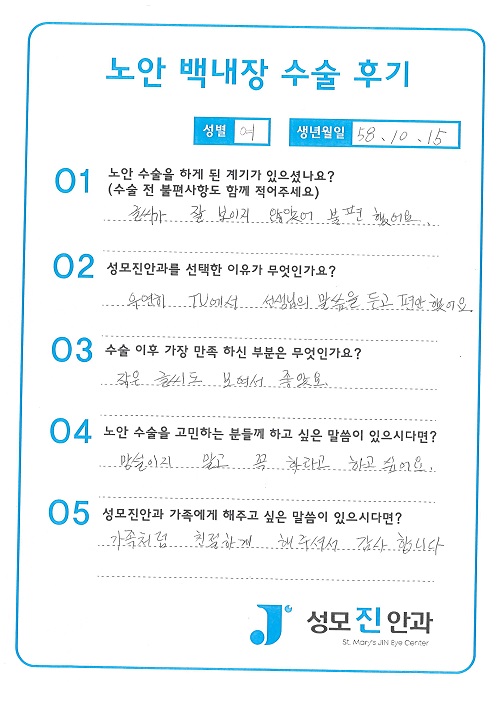 노안 백내장 수술 후기
성별 여 생년월일 58.10.15
01 노안 수술을 하게 된 계기가 있으셨나요?
(수술 전 불편사항도 함께 적어주세요)
글씨가 잘 보이지 않았어 불편했어요.
02 성모진안과를 선택한 이유가 무엇인가요?
우연히 TV에서 선생님의 말씀을 듣고 편안했어요
03 수술 이후 가장 만족 하신 부분은 무엇인가요?
작은 글씨도 보여서 좋았요.
04 노안 수술을 고민하는 분들께 하고 싶은 말씀이 있으시다면?
망설이지 말고 꼭 하라고 하고 싶어요.
05 성모진안과 가족에게 해주고 싶은 말씀이 있으시다면?
가족처럼 친절하게 해주셔서 감사 합니다
J 성모진안과
St. Mary's JIN Eye Center